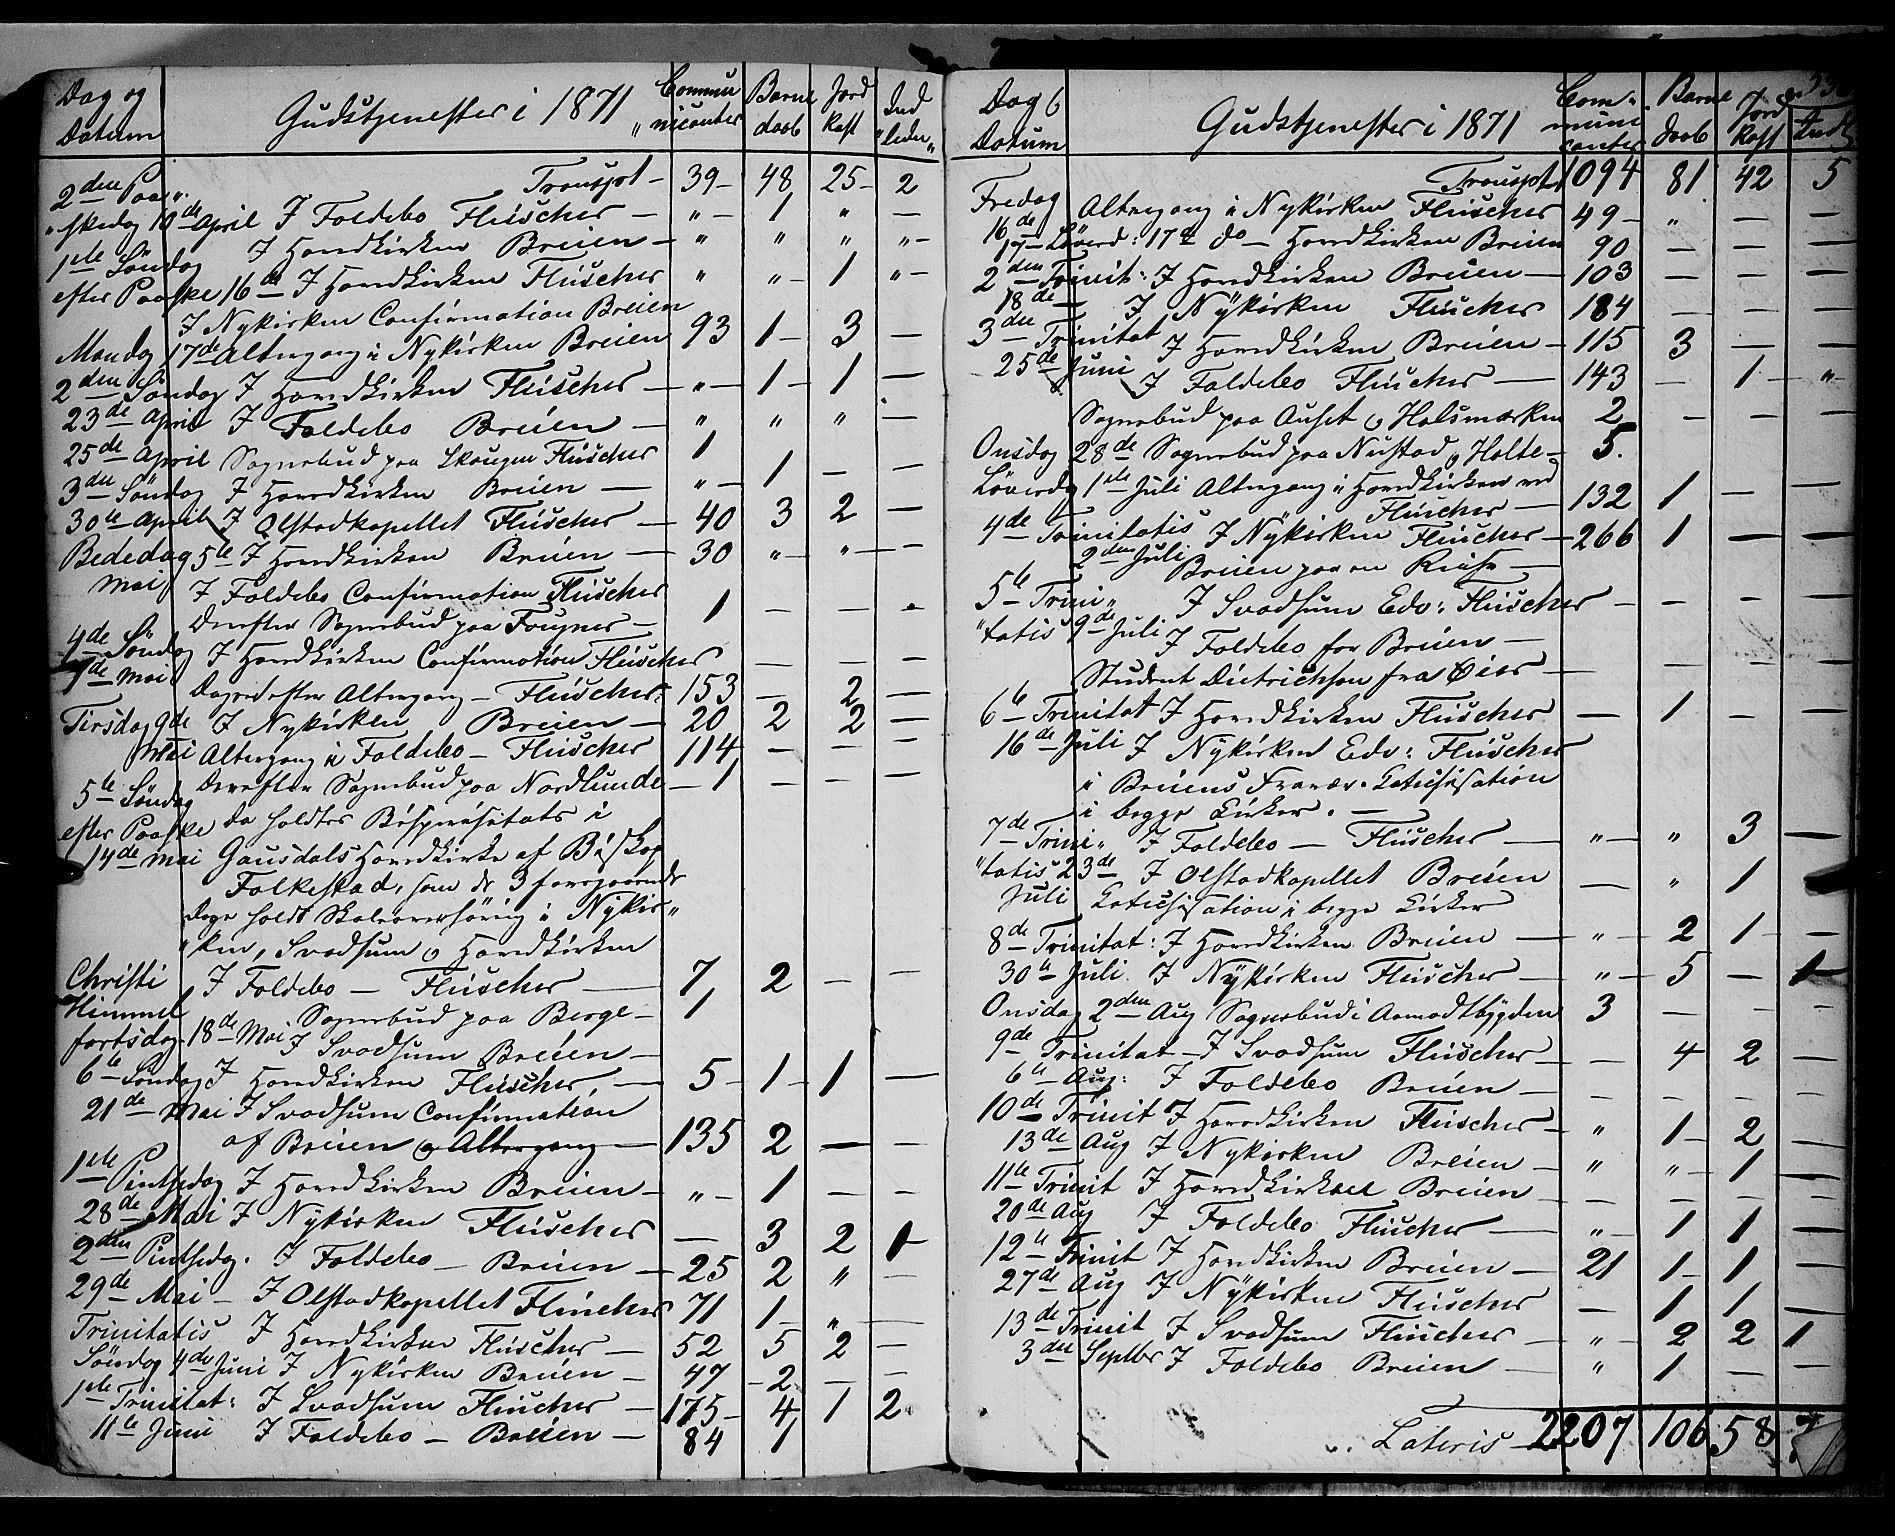 Dag og Datum | Gudstjenester i 1871 | Commu„nicanter | Barne daab | Jord kast | Ind„leder„
Transpt – 39 – 48 25 – 2
2den Paa„
„skedag 10de April I Foldebo Fleischer – „ – 1 „ –
I Hovedkirken Breien – „ „ „ „ –
1ste Søndag
efter Paaske 16de I Hovedkirken Fleischer „ „ – 1 „ –
I Nykirken Confirmation Breien
Mandag 17de Altergang i Nykirken Breien 93 1 – 3 –
2den Søndag I Hovedkirken Fleischer – „ – 1 – 1 –
23de April I Foldebo Breien – „ „ „ –
25de April Sognebud paa Skougen Fleischer 1
3die Søndag I Hovedkirken Breien – „ – 1 – –
30te April I Olstadkapellet Fleischer – 40 3 2 –
Bededag 5te I Hovedkirken Breien – 30 „ – „ – –
Mai I Foldebo Confirmation Fleischer
Derefter Sognebud paa Fougner – 1 – –
4de Søndag I Hovedkirken Confirmation Fleischer – – –
7de Mai
Dagen efter Altergang – Fleischer – 153 – 2 –
Tirsdag 9de I Nykirken Breien – 20 2 2 –
Mai Altergang i Foldebo – Fleischer 114 – – –
Derefter Sognebud paa Nordlunde – 1 – – –
5te Søndag
efter Paaske da holdtes Bispevisitats i
14de Mai Gausdals Hovedkirke af Biskop
Folkestad, som de 3 foregaaende
Dage holdt Skoleoverhøring i Nykir„
„ken, Svadsum og Hovedkirken
Christi I Foldebo – Fleischer – 7 2 – –
Himmel Sognebud paa Berge – 1
fartsdag 18de Mai I Svadsum Breien –
6te Søndag I Hovedkirken Fleischer – 5 – 1 – 1 –
21de Mai I Svadsum Confirmation
af Breien og Altergang – 135 2 – –
1ste Pintsedag I Hovedkirken Breien – „ – 1 – –
28de Mai I Nykirken Fleischer – 3 2 1
2den Pintsedag. I Foldebo – Breien – 25 2 „ –
29de Mai – I Olstadkapellet Fleischer 71 1 – „ –
Trinitatis I Hovedkirken Fleischer – 52 5 2 –
Søndag 4de Juni I Nykirken Breien – 47 – 2 – – –
1ste Trinitat: I Svadsum Fleischer – 175 – 4 1 2
11te Juni I Foldebo – Breien – 84 1
Dag og Datum | Gudstjenester i 1871 | Communicanter | Barne daab | Jord kast | Indl
Transpt 1094 81 42 5
Fredag
16de Altergang i Nykirken Fleischer 49 – „ – –
17 – Løverd: 17de do – Hovedkirken Breien 90 – – –
2den Trinit: I Hovedkirken Breien – 103 – – –
18de – I Nykirken Fleischer 184 – – –
3die Trinitat I Hovedkirken Breien – 115 3 – –
25de Juni I Foldebo Fleischer – 143 – 1 – „ –
Sognebud paa Auset og Holsmarken 2 – – –
Onsdag 28de Sognebud paa Nustad og Holte – 5.
Løverdag 1ste Juli Altergang i Hovedkirken ved
Fleischer – 132 1 – –
4de Trinitatis I Nykirken Fleischer – 266 1 – –
2den Juli Breien paa en Reise –
5te Trini„ I Svadsum Edv: Fleischer – – – –
„tatis 9de Juli I Foldebo for Breien –
Student Dietrichson fra Øier – – – –
6te Trinitat I Hovedkirken Fleischer – 1 – –
16de Juli I Nykirken Edv: Fleischer
i Breiens Fravær. Catechisation
i begge Kirker. –
7de Trini„ I Foldebo – Fleischer – „ – „ 3 –
„tatis 23de I Olstadkapellet Breien – „ 1
Juli Catechisation i begge Kirker
8de Trinitat: I Hovedkirken Breien – „ – 2 1 –
30te Juli. I Nykirken Fleischer – „ – 5 – 1
Onsdag 2den Aug Sognebud i Aamodtbygden 3 – – –
9de Trinitat – I Svadsum Fleischer – – 4 2 –
6te Aug: I Foldebo Breien – – – – –
10de Trinit I Hovedkirken Fleischer – „ 1 – 2 –
13de Aug I Nykirken Breien – „ „ – 1 –
11te Trinit I Hovedkirken Breien – – – – –
20de Aug I Foldebo Fleischer – „ 1 1 –
12te Trinit I Hovedkirken Breien – 21 1 – 1 –
27de Aug I Nykirken Fleischer – 1 1 –
13de Trinit I Svadsum Fleischer – „ – 2 2 1
3die Septbr I Foldebo Breien – „ 1 – –
Lateris – 2207 106 58